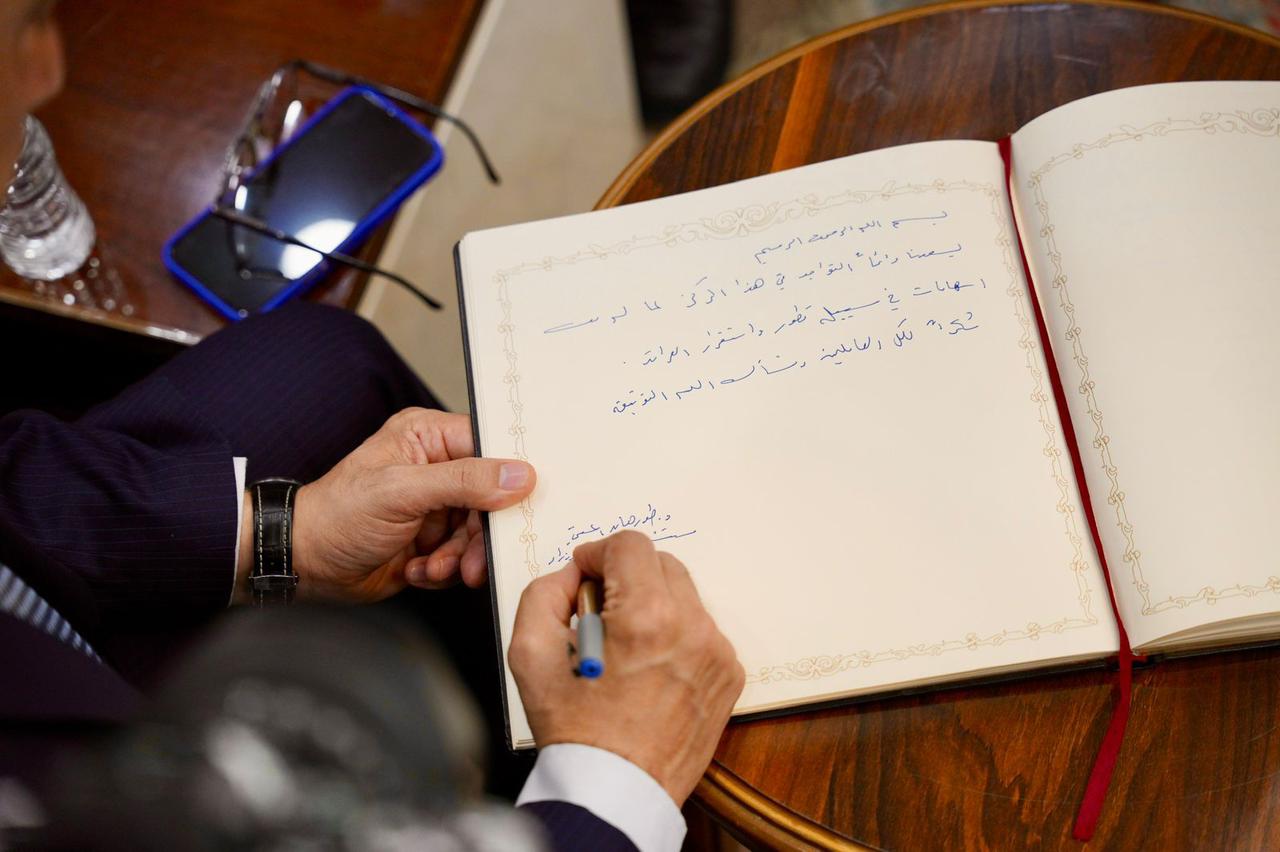 بسم الله الرحمن الرحيم
يسعدنا دائماً التواجد في هذا المركز لما له من
اسهامات في سبيل تطور واستقرار العراق .
شكراً لكل العاملين ونسأل الله التوفيق